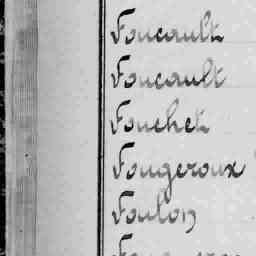 Foucault
Foucault
Fouchet
Fougeroux
Foulon